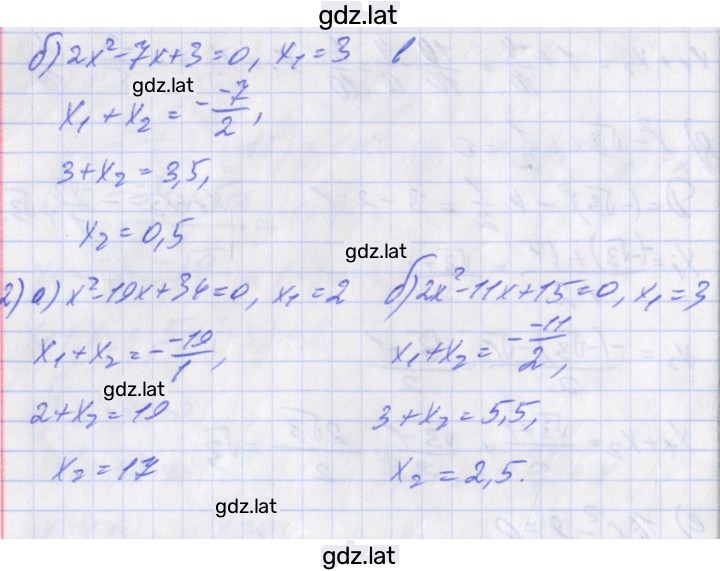 gdz.lat
б) 2x²-7x+3=0, x₁=3
gdz.lat
x₁+x₂=-\frac{-7}{2},
3+x₂=3,5,
x₂=0,5
gdz.lat
2) а) x²-19x+34=0, x₁=2
x₁+x₂=-\frac{-19}{1},
gdz.lat
2+x₂=19
x₂=17
б) 2x²-11x+15=0, x₁=3
x₁+x₂=-\frac{-11}{2},
3+x₂=5,5,
x₂=2,5.
gdz.lat
gdz.lat